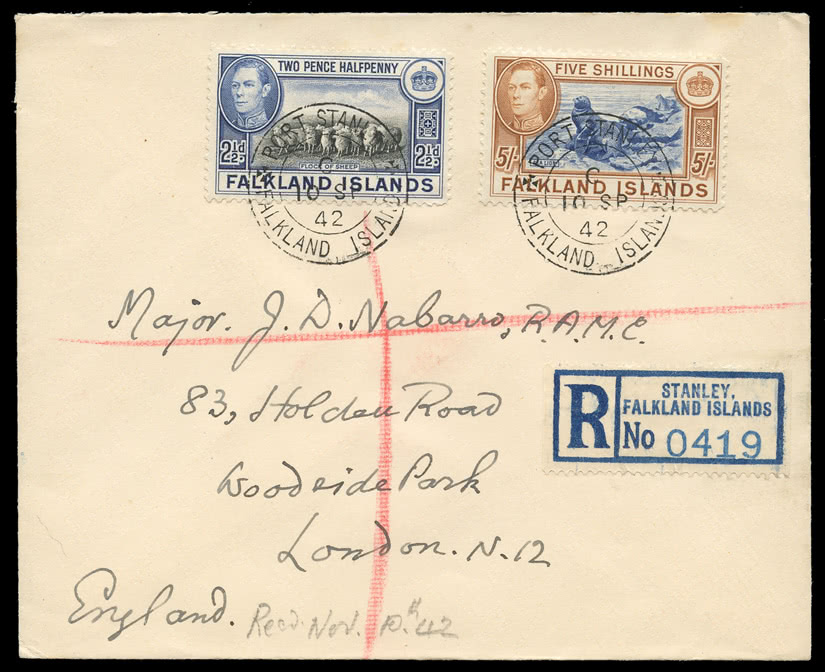 TWO PENCE HALFPENNY
2½d 2½d
FLOCK OF SHEEP
FALKLAND ISLANDS
FIVE SHILLINGS
5/- 5/-
FALKLAND ISLANDS
PORT STANLEY
C
10 SP
42
FALKLAND ISLANDS
PORT STANLEY
C
10 SP
42
FALKLAND ISLANDS
Major. J. D. Nabarro, R.A.M.C.
83, Holden Road
Woodside Park
London. N. 12
England.
Recd. Nov. 10th 42
R
STANLEY,
FALKLAND ISLANDS
No 0419